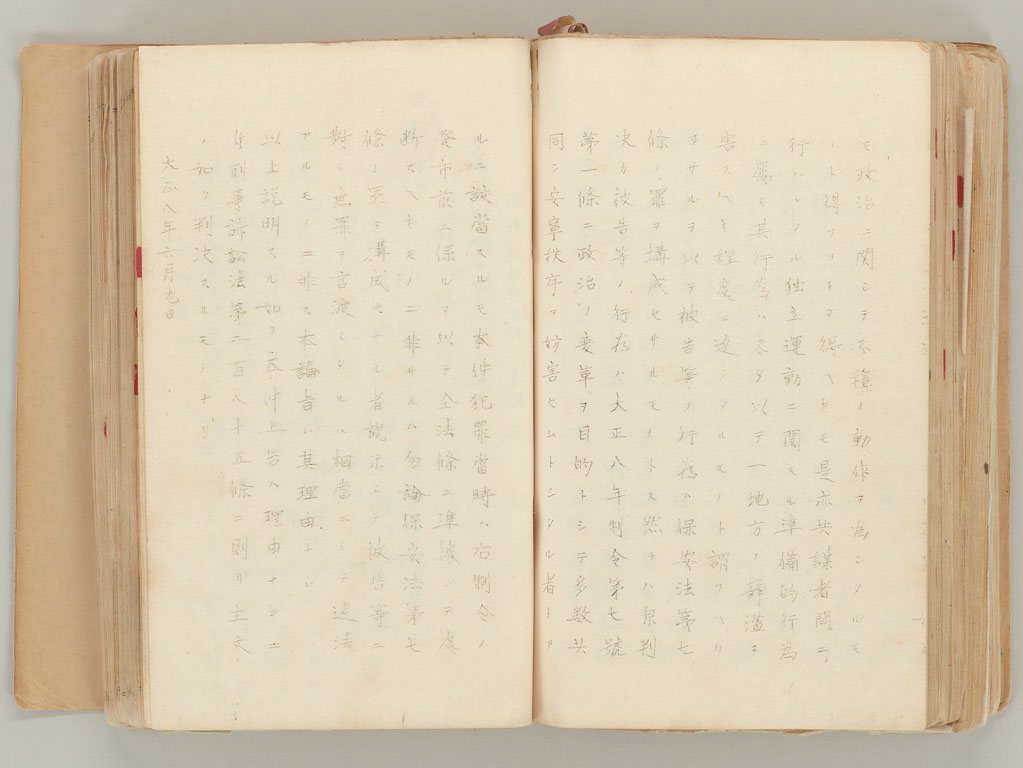 モ政治ニ関シテ不穏ノ動作ヲ為シタルモ
ノト得フコトヲ得ヘキモ是亦共謀者間ニ
行ハレタル独立運動ニ関スル準備的行為
ニ属シ其行為ハ未タ以テ一地方ノ静謐ヲ
害スヘキ程度ニ達シタルモノト謂フヘカ
ラサルヲ以テ被告等ノ行為ハ保安法第七
條ノ罪ヲ構成セサルモノトス然ラハ原判
决カ被告等ノ行為ハ大正八年制令第七號
第一條ニ政治ノ変革ヲ目的トシテ多数共
同シ安寧秩序ヲ妨害セムトシタル者トア
ルニ該當スルモ本件犯罪當時ハ右制令ノ
発布前ニ係ルヲ以テ仝法條ニ準據シテ處
断スヘキモノニ非サルハ勿論保安法第七
條ノ罪ヲ構成セサル者説示シテ被告等ニ
對シ無罪ヲ言渡シタルハ相當ニシテ違法
アルモノニ非ス本論旨ハ其理由ナシ
以上説明スル如ク本件上告ハ理由ナキニ
付刑事訴訟法第二百八十五條ニ則リ主文
ノ如ク判决スルモノナリ
大正八年六月九日